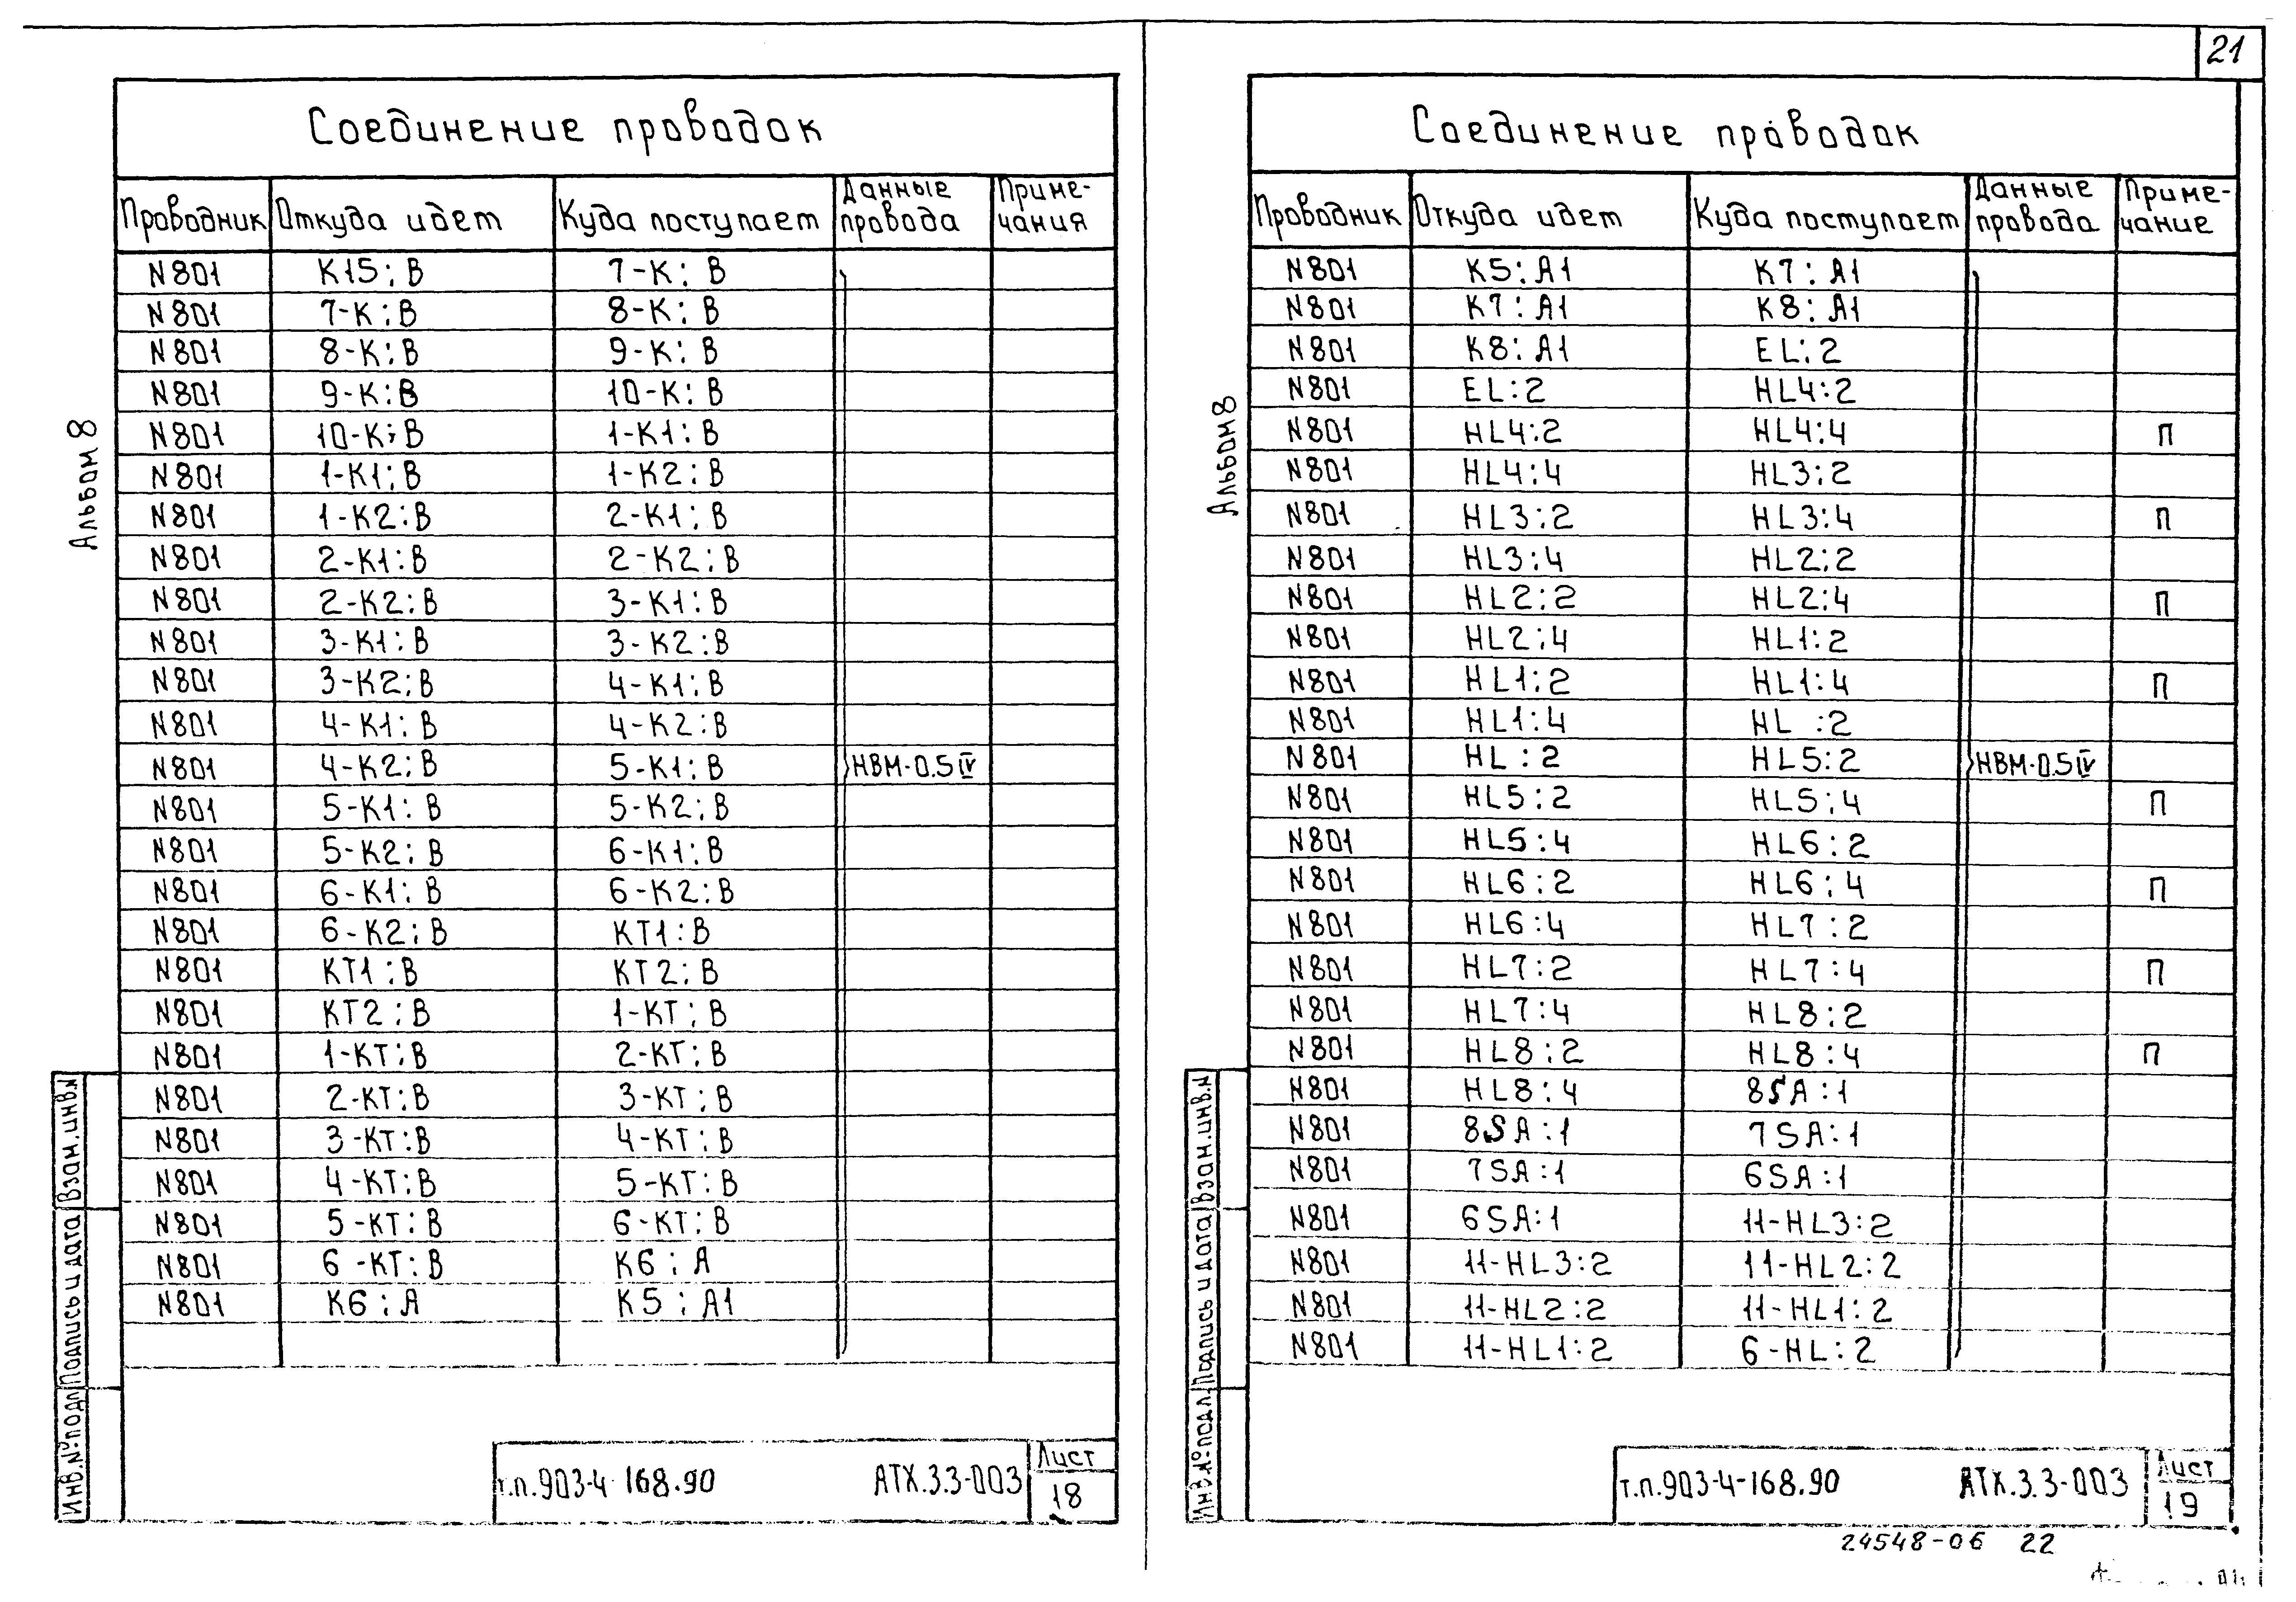 21
Соединение проводок
Проводник Откуда идет Куда поступает Данные провода Приме-чания
N801 К15:В 7-К:В
N801 7-К:В 8-К:В
N801 8-К:В 9-К:В
N801 9-К:В 10-К:В
N801 10-К:В 1-К1:В
N801 1-К1:В 1-К2:В
N801 1-К2:В 2-К1:В
N801 2-К1:В 2-К2:В
N801 2-К2:В 3-К1:В
N801 3-К1:В 3-К2:В
N801 3-К2:В 4-К1:В
N801 4-К1:В 4-К2:В
N801 4-К2:В 5-К1:В НВМ-0.5 IV
N801 5-К1:В 5-К2:В
N801 5-К2:В 6-К1:В
N801 6-К1:В 6-К2:В
N801 6-К2:В КТ1:В
N801 КТ1:В КТ2:В
N801 КТ2:В 1-КТ:В
N801 1-КТ:В 2-КТ:В
N801 2-КТ:В 3-КТ:В
N801 3-КТ:В 4-КТ:В
N801 4-КТ:В 5-КТ:В
N801 5-КТ:В 6-КТ:В
N801 6-КТ:В К6:А
N801 К6:А К5:А1
Альбом 8
Взам.инв.N
Подпись и дата
Инв.№подл
т.п.903-4-168.90 АТХ.3.3-003 Лист 18
Соединение проводок
Проводник Откуда идет Куда поступает Данные провода Приме-чание
N801 К5:А1 К7:А1
N801 К7:А1 К8:А1
N801 К8:А1 EL:2
N801 EL:2 HL4:2
N801 HL4:2 HL4:4 П
N801 HL4:4 HL3:2
N801 HL3:2 HL3:4 П
N801 HL3:4 HL2:2
N801 HL2:2 HL2:4 П
N801 HL2:4 HL1:2
N801 HL1:2 HL1:4 П
N801 HL1:4 HL :2
N801 HL :2 HL5:2 НВМ-0.5 IV
N801 HL5:2 HL5:4 П
N801 HL5:4 HL6:2
N801 HL6:2 HL6:4 П
N801 HL6:4 HL7:2
N801 HL7:2 HL7:4 П
N801 HL7:4 HL8:2
N801 HL8:2 HL8:4 П
N801 HL8:4 8SA:1
N801 8SA:1 7SA:1
N801 7SA:1 6SA:1
N801 6SA:1 11-HL3:2
N801 11-HL3:2 11-HL2:2
N801 11-HL2:2 11-HL1:2
N801 11-HL1:2 6-HL:2
Альбом 8
Взам.инв.N
Подпись и дата
Инв.№подл.
т.п.903-4-168.90 АТХ.3.3-003 Лист 19
24548-06 22